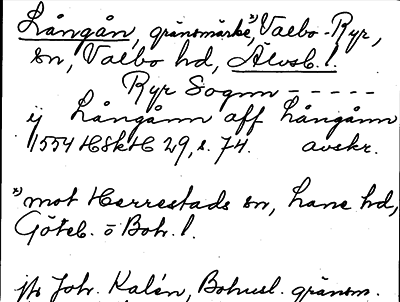 Långån, gränsmärkeˣ⁾, Valbo-Ryr,
sn, Valbo hd, Älvsb. l.
Ryr Sognn - - - - -
ij Långånn aff Långånn
1554 HSkH 29, s. 74. avskr.
ˣ⁾ mot Herrestads sn, Lane hd,
Göteb. o Boh. l.
jfr Joh. Kalén, Bohusl. gränsm.